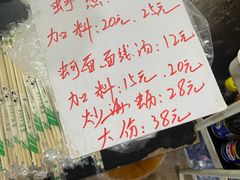 加料:20元.25元
蚵面面线汤:12元
加料:15元.20元
炒海蛎:28元
大份:38元